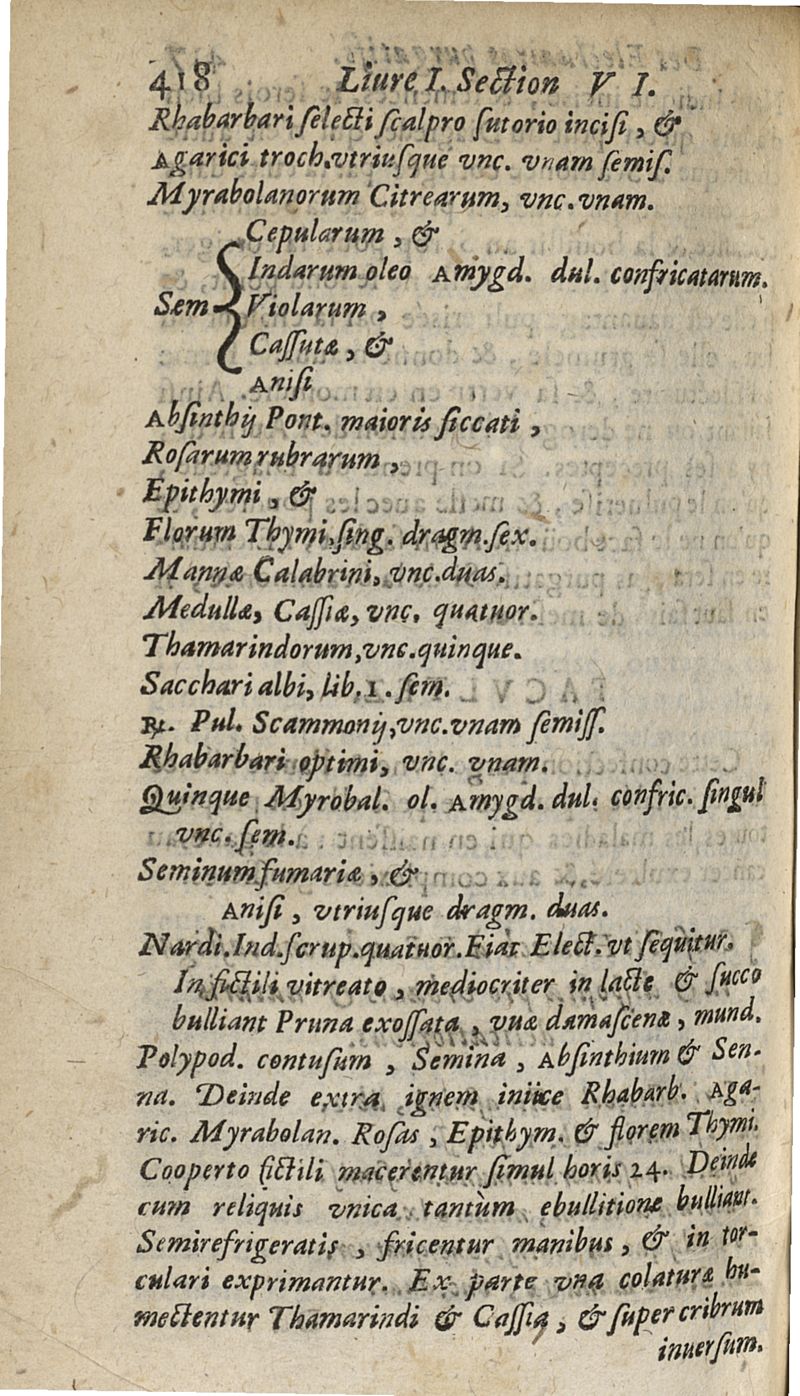 418 Liure I. Section V I.
Rhabarbari ſelecti ſcalpro ſutorio inciſi, &
Agarici troch. vtriuſque vnc. vnam ſemiſ.
Myrabolanorum Citrearum, vnc. vnam.
Cepularum, &
Indarum oleo Amygd. dul. confricatarum.
Sem Violarum,
Caſſutæ, &
Aniſi
Abſinthij Pont. maioris ſiccati,
Roſarum rubrarum,
Epithymi, &
Florum Thymi, ſing. dragm. ſex.
Mannæ Calabrini, vnc. duas.
Medullæ, Caſſiæ, vnc. quatuor.
Thamarindorum, vnc. quinque.
Sacchari albi, lib. 1. ſem.
℞. Pul. Scammonij, vnc. vnam ſemiſſ.
Rhabarbari optimi, vnc. vnam.
Quinque Myrobal. ol. Amygd. dul. confric. ſingul
vnc. ſem.
Seminum fumariæ, &
Aniſi, vtriuſque dragm. duas.
Nardi. Ind. ſcrup. quatuor. Fiat Elect. vt ſequitur.
In fictili vitreato, mediocriter in lacte & ſucco
bulliant Pruna exoſſata, vuæ damaſcenæ, mund.
Polypod. contuſum, Semina, Abſinthium & Sen-
na. Deinde extra ignem iniice Rhabarb. Aga-
ric. Myrabolan. Roſas, Epithym. & florem Thymi.
Cooperto fictili macerentur ſimul horis 24. Deinde
cum reliquis vnica tantùm ebullitione bulliant.
Semirefrigeratis, fricentur manibus, & in tor-
culari exprimantur. Ex parte vna colaturæ hu-
mectentur Thamarindi & Caſſia, & ſuper cribrum
inuerſum.